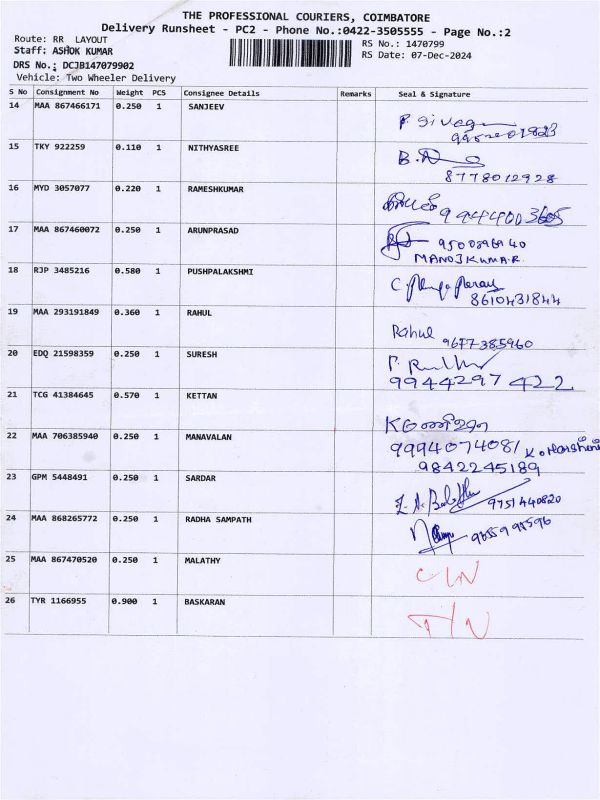 THE PROFESSIONAL COURIERS, COIMBATORE
Delivery Runsheet - PC2 - Phone No.:0422-3505555 - Page No.:2
Route: RR LAYOUT
Staff: ASHOK KUMAR
DRS No.: DCJB147079902
Vehicle: Two Wheeler Delivery
RS No.: 1470799
RS Date: 07-Dec-2024
S No Consignment No Weight PCS Consignee Details Remarks Seal & Signature
14 MAA 867466171 0.250 1 SANJEEV
15 TKY 922259 0.110 1 NITHYASREE
8778012928
16 MYD 3057077 0.220 1 RAMESHKUMAR
17 MAA 867460072 0.250 1 ARUNPRASAD
MANOJKUMAR.R
18 RJP 3485216 0.580 1 PUSHPALAKSHMI
8610431844
19 MAA 293191849 0.360 1 RAHUL
Rahul 9677385960
20 EDQ 21598359 0.250 1 SURESH
9944297422
21 TCG 41384645 0.570 1 KETTAN
22 MAA 706385940 0.250 1 MANAVALAN
9994074081
9842245189
23 GPM 5448491 0.250 1 SARDAR
9751440820
24 MAA 868265772 0.250 1 RADHA SAMPATH
25 MAA 867470520 0.250 1 MALATHY
26 TYR 1166955 0.900 1 BASKARAN